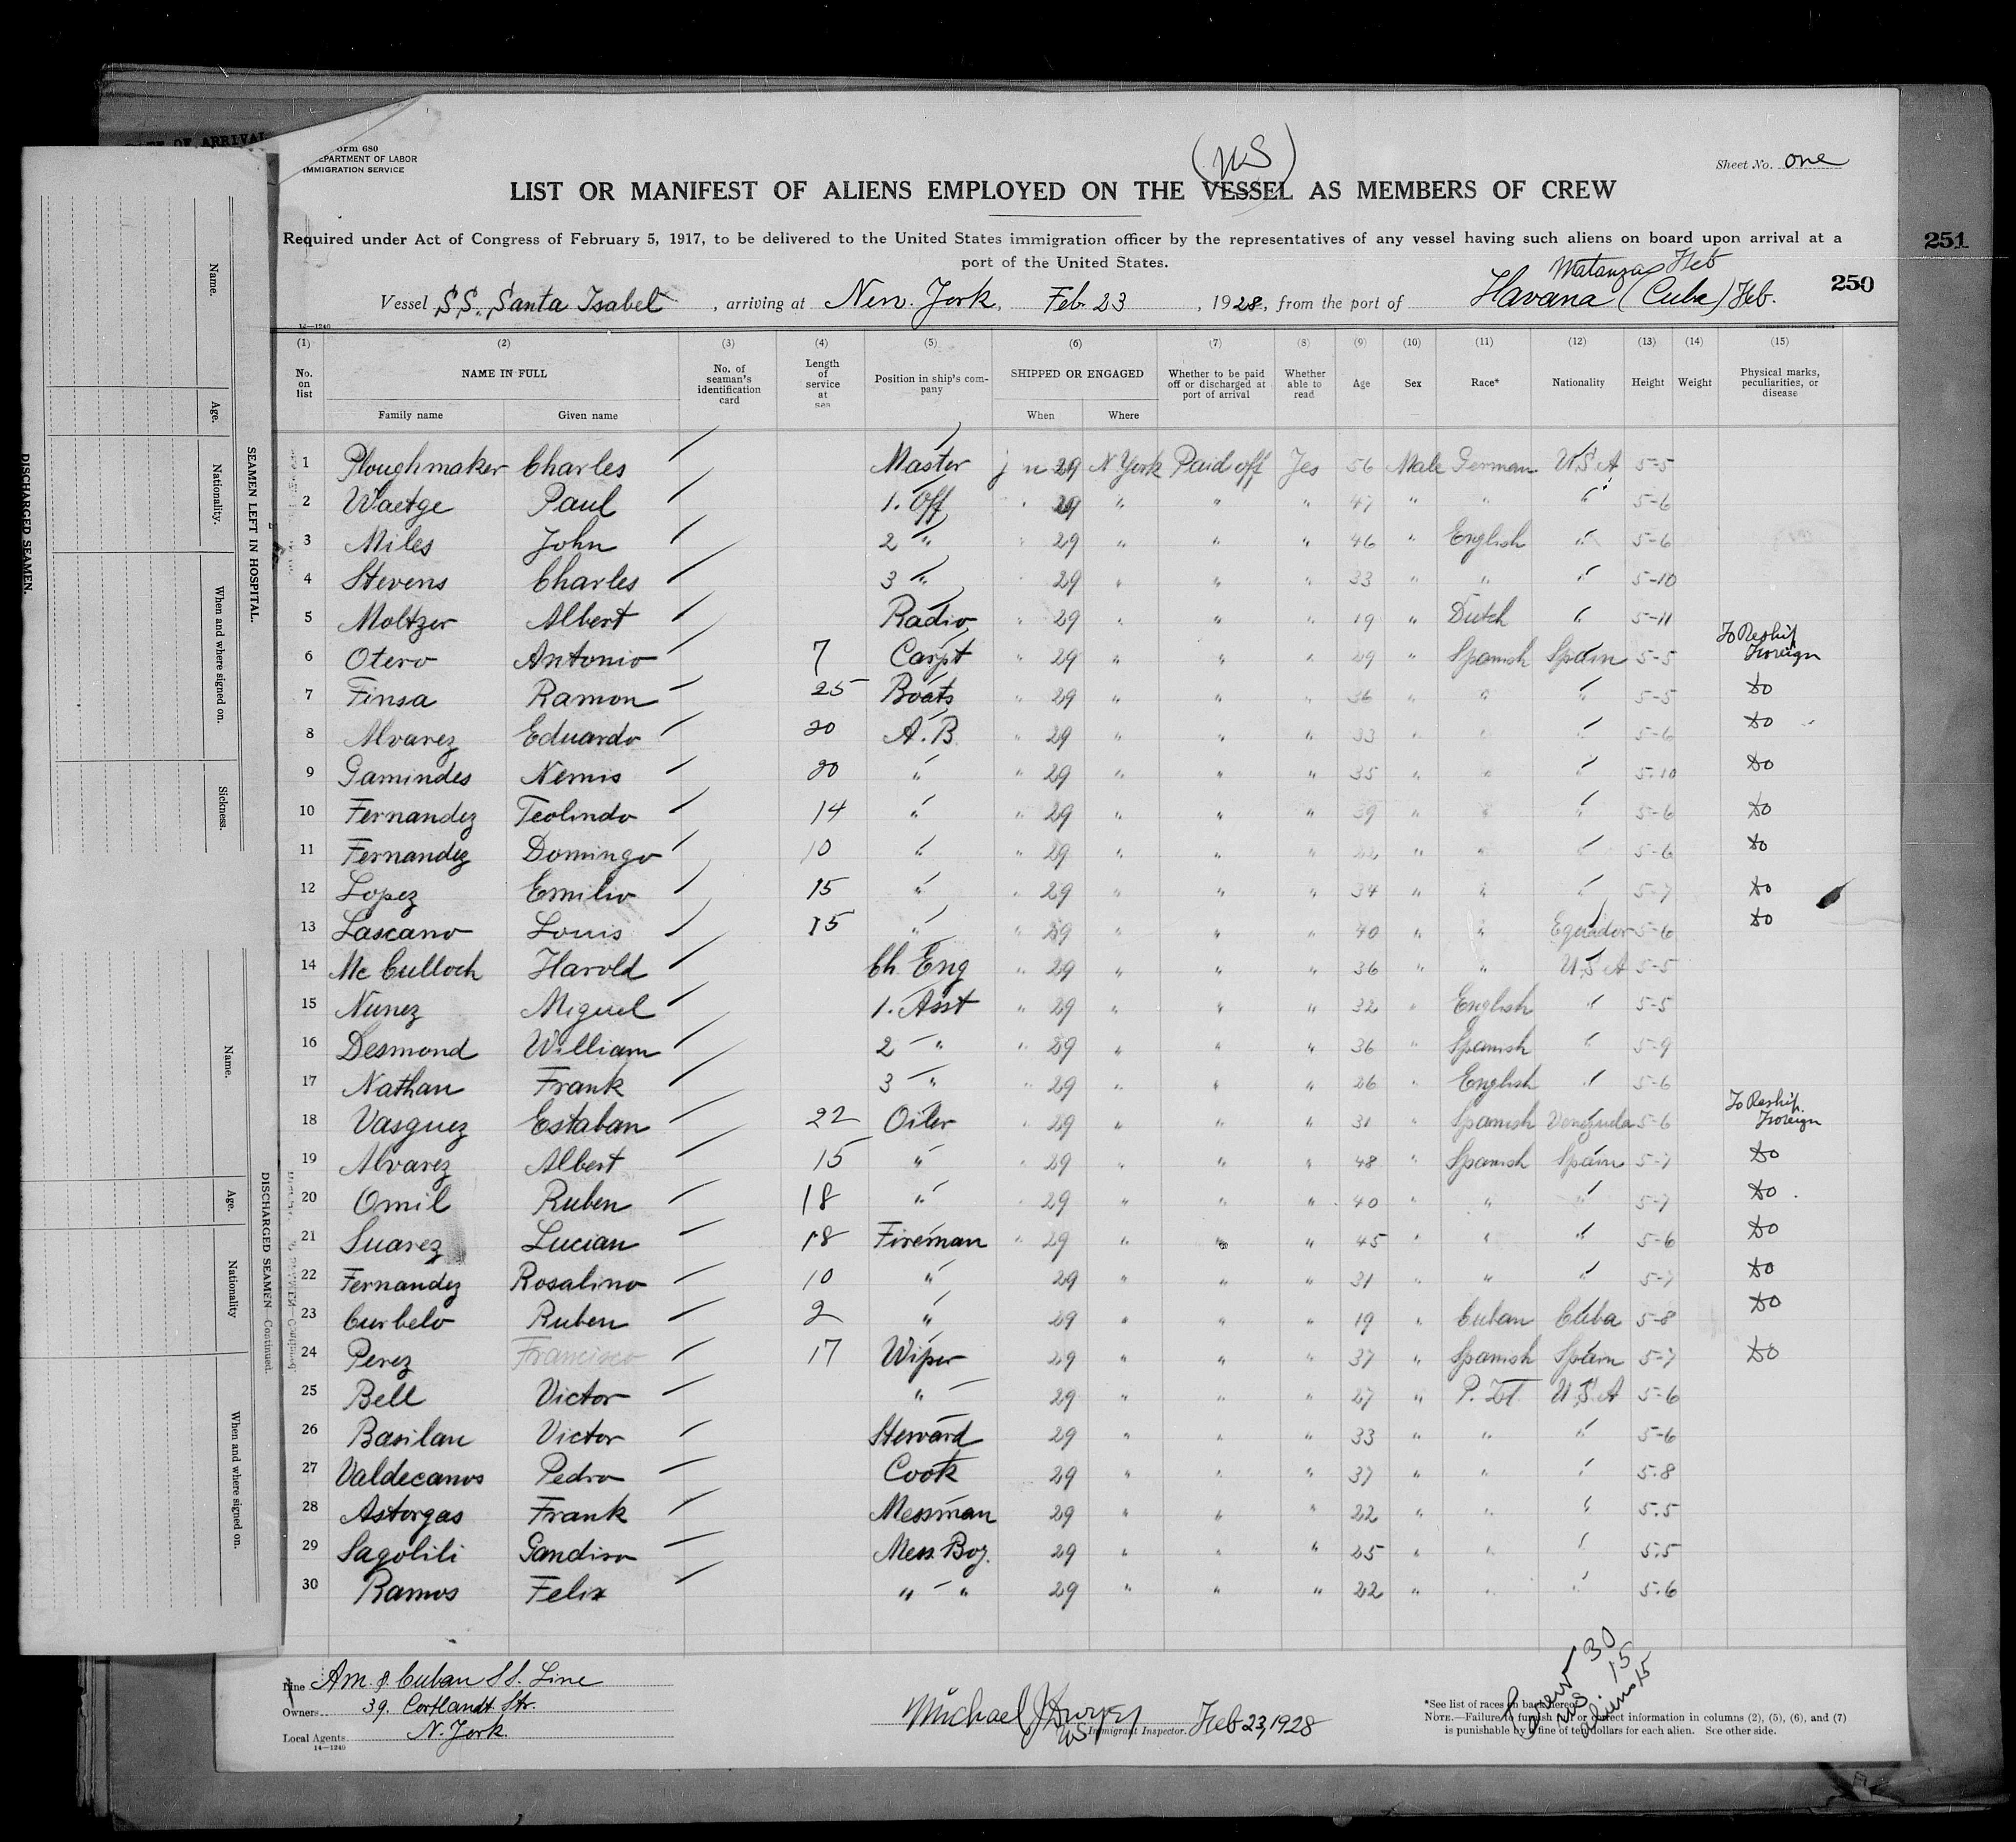 DATE OF ARRIVAL
Form 680
DEPARTMENT OF LABOR
IMMIGRATION SERVICE
(US)
Sheet No. one
LIST OR MANIFEST OF ALIENS EMPLOYED ON THE VESSEL AS MEMBERS OF CREW
Required under Act of Congress of February 5, 1917, to be delivered to the United States immigration officer by the representatives of any vessel having such aliens on board upon arrival at a
port of the United States.
251
250
Matanzas Feb
Vessel S.S. Santa Isabel, arriving at New York, Feb 23, 1928, from the port of Havana (Cuba) Feb.
14—1240
(1) (2) (3) (4) (5) (6) (7) (8) (9) (10) (11) (12) (13) (14) (15)
No. on list NAME IN FULL No. of seaman's identification card Length of service at sea Position in ship's company SHIPPED OR ENGAGED Whether to be paid off or discharged at port of arrival Whether able to read Age Sex Race* Nationality Height Weight Physical marks, peculiarities, or disease
Family name Given name When Where
1 Ploughmaker Charles Master 29 N York Paid off Yes 56 Male German U.S.A 5-5
2 Waetge Paul 1. Off 29 " " " 47 " " " 5-6
3 Miles John 2 " 29 " " " 46 " English " 5-6
4 Stevens Charles 3 " 29 " " " 33 " " " 5-10
5 Moltzer Albert Radio " 29 " " " 19 " Dutch " 5-11
6 Otero Antonio 7 Carpt " 29 " " " 29 " Spanish Spain 5-5 To Reship Foreign
7 Finsa Ramon 25 Boats " 29 " " " 36 " " " 5-5 Do
8 Alvarez Eduardo 20 A.B. " 29 " " " 33 " " " 5-6 Do
9 Gamindes Nemis 20 " " 29 " " " 35 " " " 5-10 Do
10 Fernandez Teolindo 14 " " 29 " " " 39 " " " 5-6 Do
11 Fernandez Domingo 10 " " 29 " " " " " " 5-6 Do
12 Lopez Emilio 15 " " 29 " " " 34 " " " 5-7 Do
13 Lascano Louis 15 " " 29 " " " 40 " " Equador 5-6 Do
14 Mc Culloch Harold Ch. Eng " 29 " " " 36 " " U.S.A 5-5
15 Nunez Miguel 1. Asst " 29 " " " 32 " English " 5-5
16 Desmond William 2 " " 29 " " " 36 " Spanish " 5-9
17 Nathan Frank 3 " " 29 " " " 26 " English " 5-6
18 Vasguez Estaban 22 Oiler " 29 " " " 31 " Spanish Venezuela 5-6 To Reship. Foreign
19 Alvarez Albert 15 " " 29 " " " 48 " Spanish Spain 5-7 Do
20 Omil Ruben 18 " " 29 " " " 40 " " " 5-7 Do
21 Suarez Lucian 18 Fireman " 29 " " " 45 " " " 5-6 Do
22 Fernandez Rosalino 10 " 29 " " " 31 " " " 5-7 Do
23 Curbelo Ruben 2 " 29 " " " 19 " Cuban Cuba 5-8 Do
24 Perez Francisco 17 Wiper 29 " " " 37 " Spanish Spain 5-7 Do
25 Bell Victor " 29 " " " 27 " P. Isl U.S.A 5-6
26 Basilan Victor Steward 29 " " " 33 " " " 5-6
27 Valdecanos Pedro Cook 29 " " " 37 " " " 5.8
28 Astorgas Frank Messman 29 " " " 22 " " " 5.5
29 Sagolili Gandiro Mess Boy. 29 " " " 25 " " " 5.5
30 Ramos Felix " " 29 " " " 22 " " " 5.6
Line Am. & Cuban S.S. Line
Owners 39. Cortlandt Str.
Local Agents N. York
14—1240
Michael J Dwyer
Immigrant Inspector. Feb 23, 1928
Crew 30
US 15
Aliens 15
*See list of races on back hereof.
NOTE.—Failure to furnish full or correct information in columns (2), (5), (6), and (7)
is punishable by a fine of ten dollars for each alien. See other side.
SEAMEN LEFT IN HOSPITAL.
Name.
Age.
Nationality.
When and where signed on.
Sickness.
DISCHARGED SEAMEN.
DISCHARGED SEAMEN—Continued.
Name.
Age.
Nationality
When and where signed on.